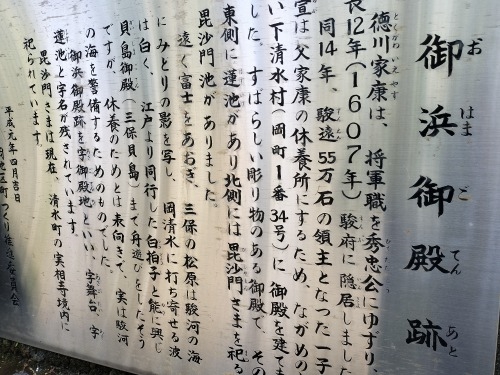 御浜御殿跡
おはまごてんあと
徳川家康は、将軍職を秀忠公にゆずり、
長12年(1607年)駿府に隠居しました
同14年、駿遠55万石の領主となった一子
宣は父家康の休養所にするため、ながめの
い下清水村(岡町1番34号)に御殿を建てま
した。すばらしい彫り物のある御殿で、その
東側に蓮池があり北側には毘沙門さまを祀る
毘沙門池がありました。
遠く富士をあおぎ、三保の松原は駿河の海
にみとりの影を写し、岡清水に打ち寄せる波
は白く、江戸より同行した白拍子と能に興じ
貝島御殿(三保貝島)まで舟遊びをしたそう
ですが、休養のためとは表向きで、実は駿河
の海を警備するためのものでした。
御浜御殿跡を字御殿地といい、字舞台、字
蓮池と字名が残されています。
毘沙門さまは現在、清水町の実相寺境内に
祀られています。
平成元年四月吉日
地区町づくり推進委員会